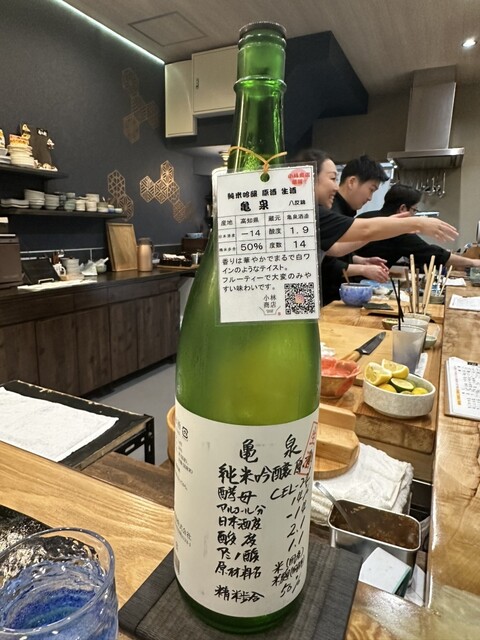 純米吟醸 原酒 生酒
亀泉 八反錦
産地 高知県 蔵元 亀泉酒造
日本酒度 −14 酸度 1.9
精米歩合 50% 度数 14
香りは華やかでまるで白ワ
インのようなテイスト。
フルーティーで大変のみや
すい味わいです。
小林
商店
亀 泉
純米吟醸原酒
酵母 CEL-24
アルコール分
日本酒度
酸度 2.1
アミノ酸 1.1
原材料名
精米歩合 50%